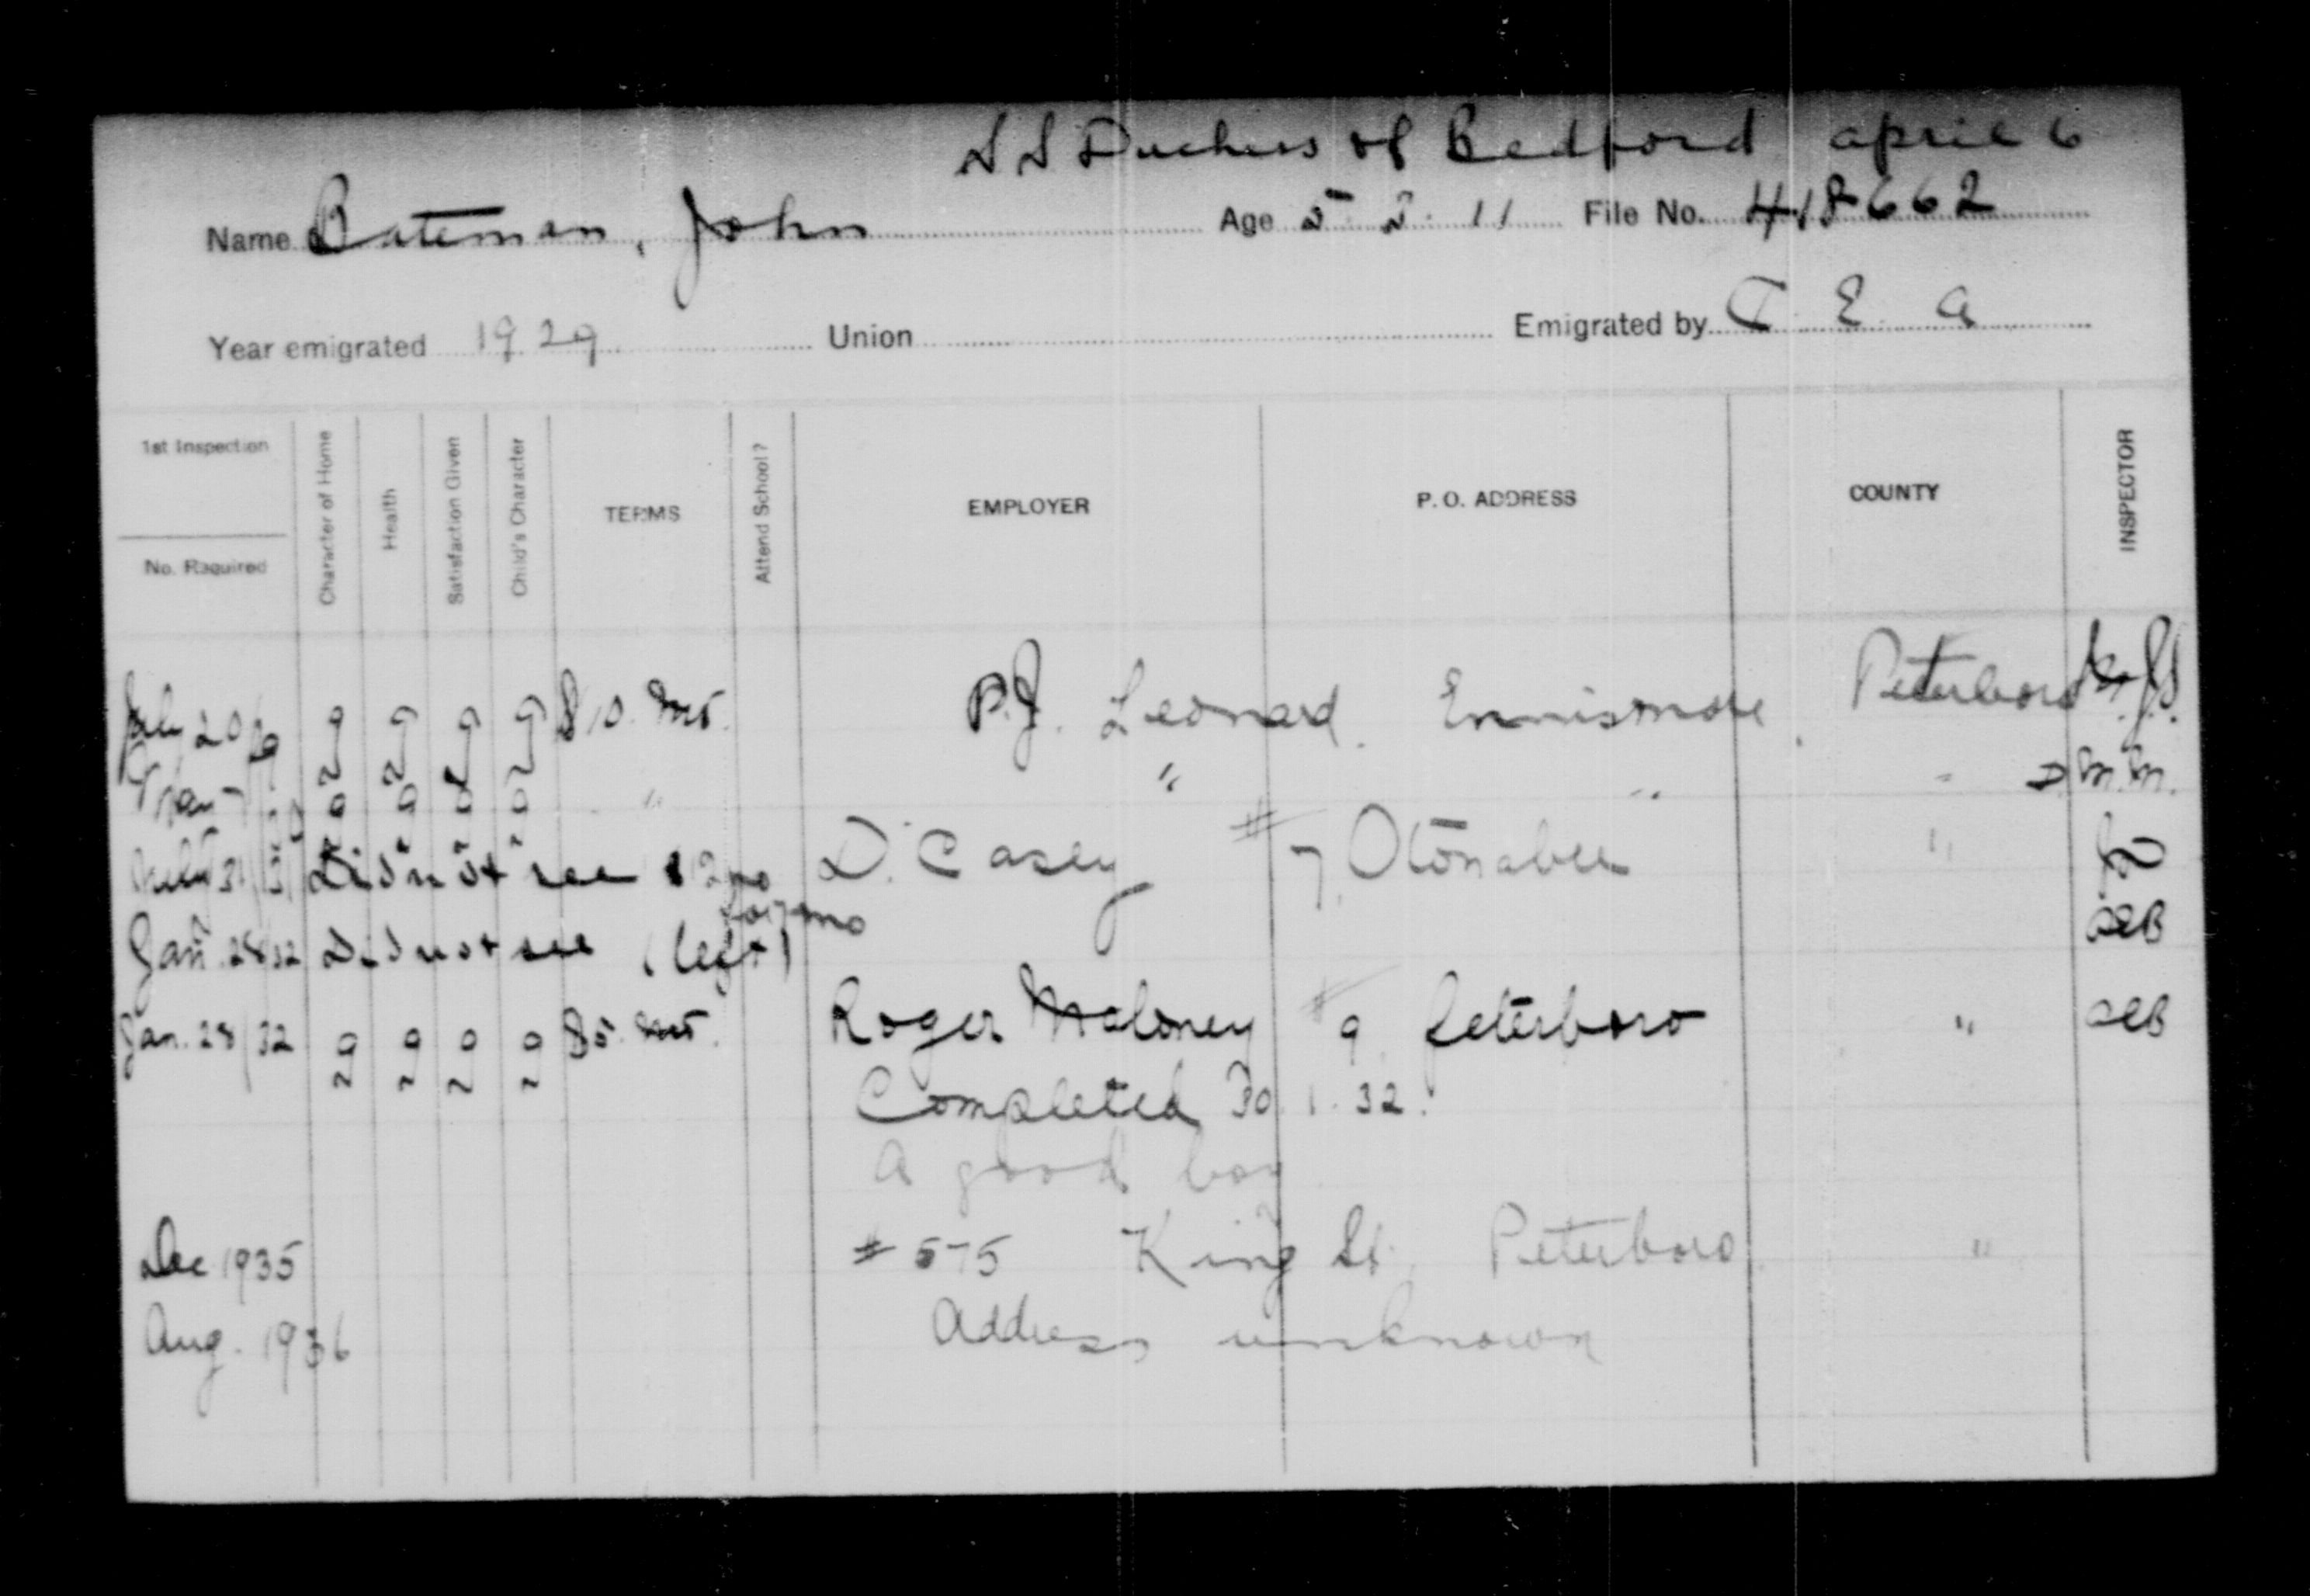 S S Duchess of Bedford April 6
Name Bateman, John Age 5 2 11 File No. 418662
Year emigrated 1929 Union Emigrated by C E A
1st Inspection
No. Required
Character of Home
Health
Satisfaction Given
Child's Character
TERMS
Attend School?
EMPLOYER
P. O. ADDRESS
COUNTY
INSPECTOR
July 20/ g g g g $10. mo. P.J. Leonard. Ennismore. Peterboro
g g g g " " " " D M.M.
July 31/31 Did not see $ 2 D. Casey #7, Otonabee "
Jan. 28 32 Did not see (left) OEB
Jan. 28/32 g g g g $5. mo. Roger Maloney #9. Peterboro " OEB
Completed 30. 1. 32.
A good boy
Dec 1935 # 575 King St. Peterboro "
Aug. 1936 Address unknown